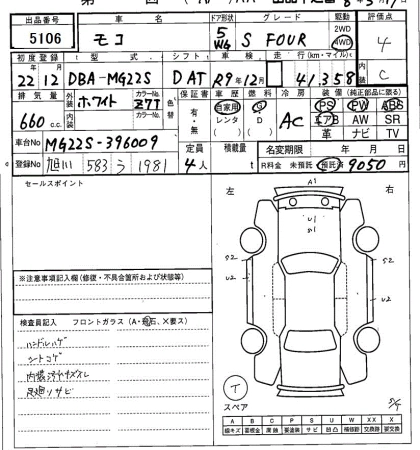 出品番号 車名 ドア形状 グレード 駆動 評価点
5106 モコ 5 WG S FOUR 2WD 4WD 4
初度登録 型式 シフト 車検 走行(km・マイル) 内装
22年12月 DBA-MG22S DAT R9年12月 41,358 C
排気量 外装 カラーNo. 色替 保証書 車歴 燃料 冷房 装備(純正部品に限る)
660 c.c. ホワイト Z7T 有・無 自家用 レンタ G D AC PS PW ABS
エアB AW SR
革 ナビ TV
車台No MG22S-396009 定員 積載量 名変期限 年 月 日
登録No 旭川 583 う 1981 4人 t R料金 未預託 預託済 9050 円
セールスポイント
左 A1 右
U1
S1
S2 S2
U2 U2
※注意事項記入欄(修復・不具合箇所および状態等)
検査員記入 フロントガラス(A・飛石、X要ス)
ハンドルハゲ
シートコゲ
足廻リサビ
T
スペア
A B C P S U W XX X
線キズ 腐食 要塗装 サビ 凹凸 補修跡 交換跡 要交換